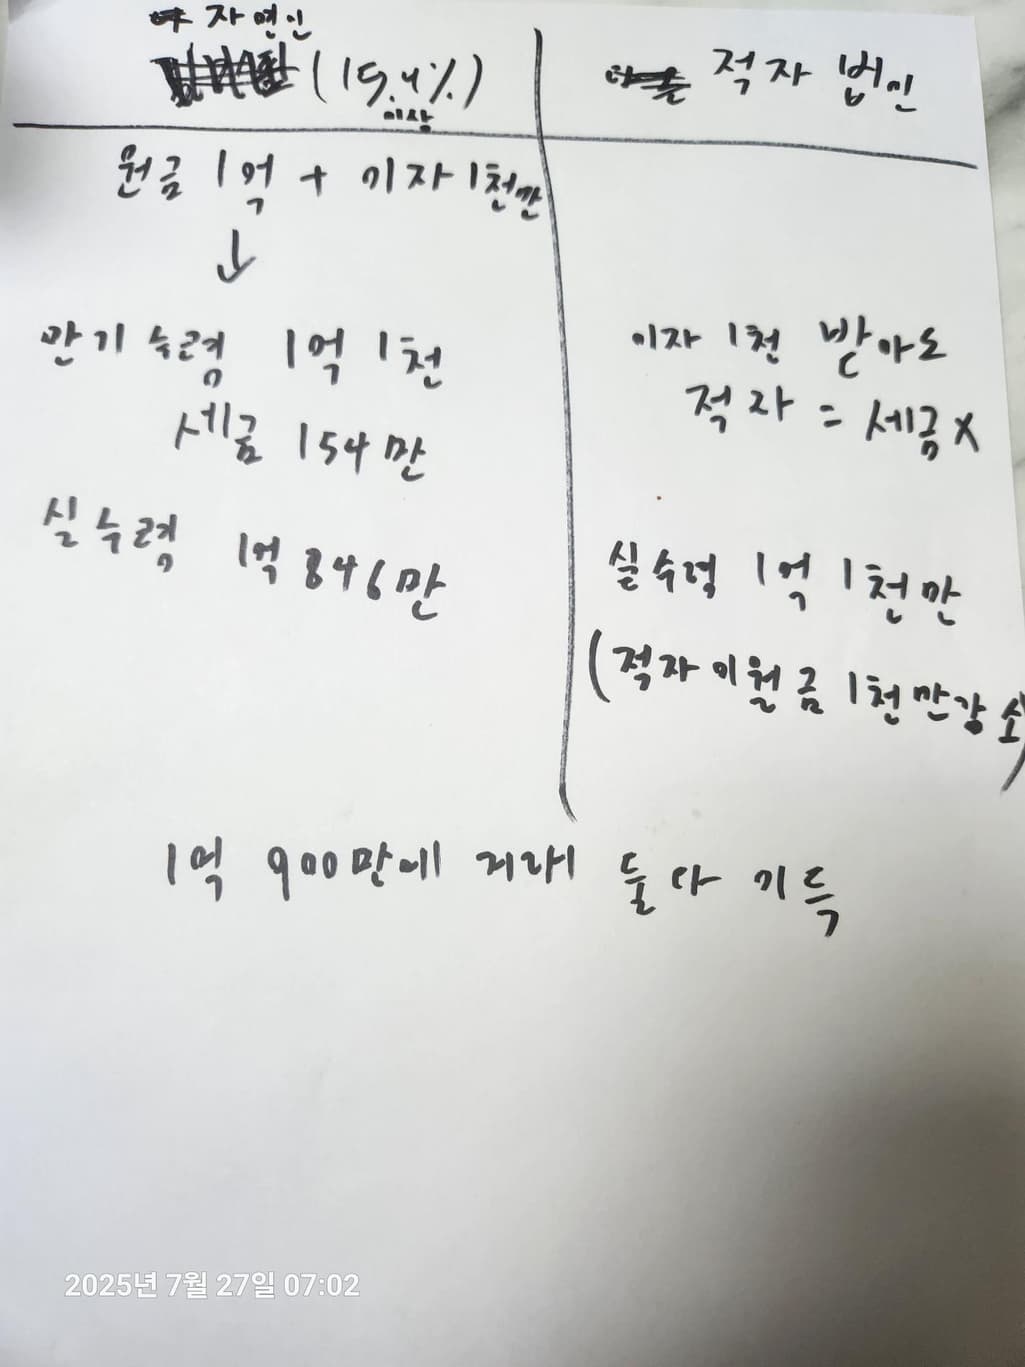 자연인
(15.4%)
이상
원금 1억 + 이자 1천만
↓
만기 수령 1억 1천
세금 154만
실수령 1억 846만
적자 법인
이자 1천 받아도
적자 = 세금 X
실수령 1억 1천만
(적자 이월금 1천만 감소)
1억 900만에 거래 둘다 기득
2025년 7월 27일 07:02